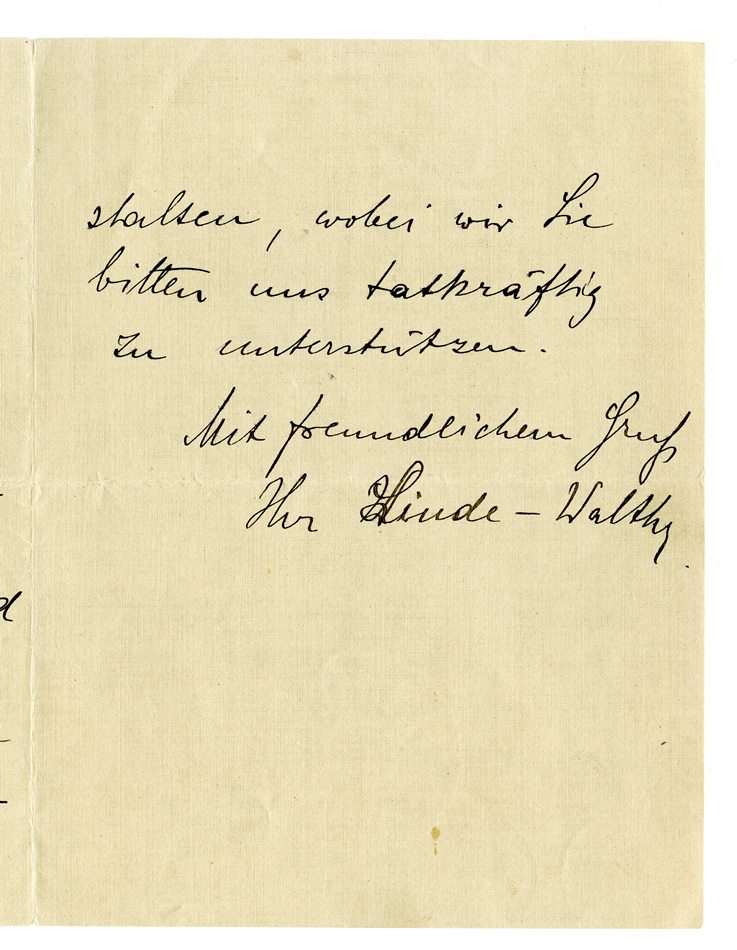 stalten, wobei wir Sie
bitten uns tatkräftig
zu unterstützen.
Mit freundlichem Gruß
Ihr Hinde - Walthy